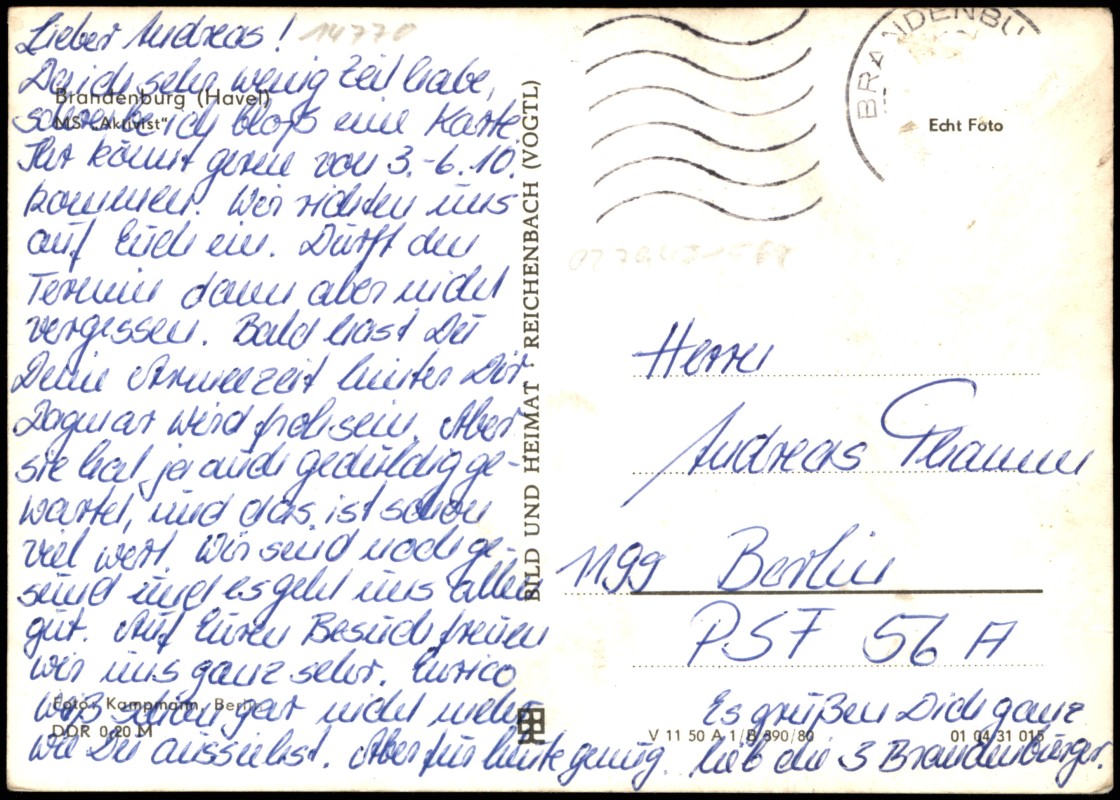 Lieber Andreas! 14770
Da ich sehr wenig Zeit habe,
Brandenburg (Havel)
schreibe ich bloß eine Karte.
MS „Aktivist"
Ihr könnt gerne von 3.-6.10.
kommen. Wir richten uns
auf Euch ein. Dürft den
Termin dann aber nicht
vergessen. Bald hast Du
Deine Armeezeit hinter Dir
Dagmar wird froh sein. Aber
sie hat ja auch geduldig ge-
wartet, und das ist schon
viel wert. Wir sind noch ge-
sund und es geht uns allen
gut. Auf Euren Besuch freuen
wir uns ganz sehr. Enrico
Foto: Kampmann, Berlin
weiß schon gar nicht mehr
DDR 0,20 M
wie Du aussiehst. Aber für heute genug.
Es grüßen Dich ganz
lieb die 3 Brandenburger.
BILD UND HEIMAT · REICHENBACH (VOGTL)
BRANDENBU
Echt Foto
Herrn
Andreas Thamm
1199 Berlin
PSF 56 A
V 11 50 A 1/B 890/80 01 04 31 015